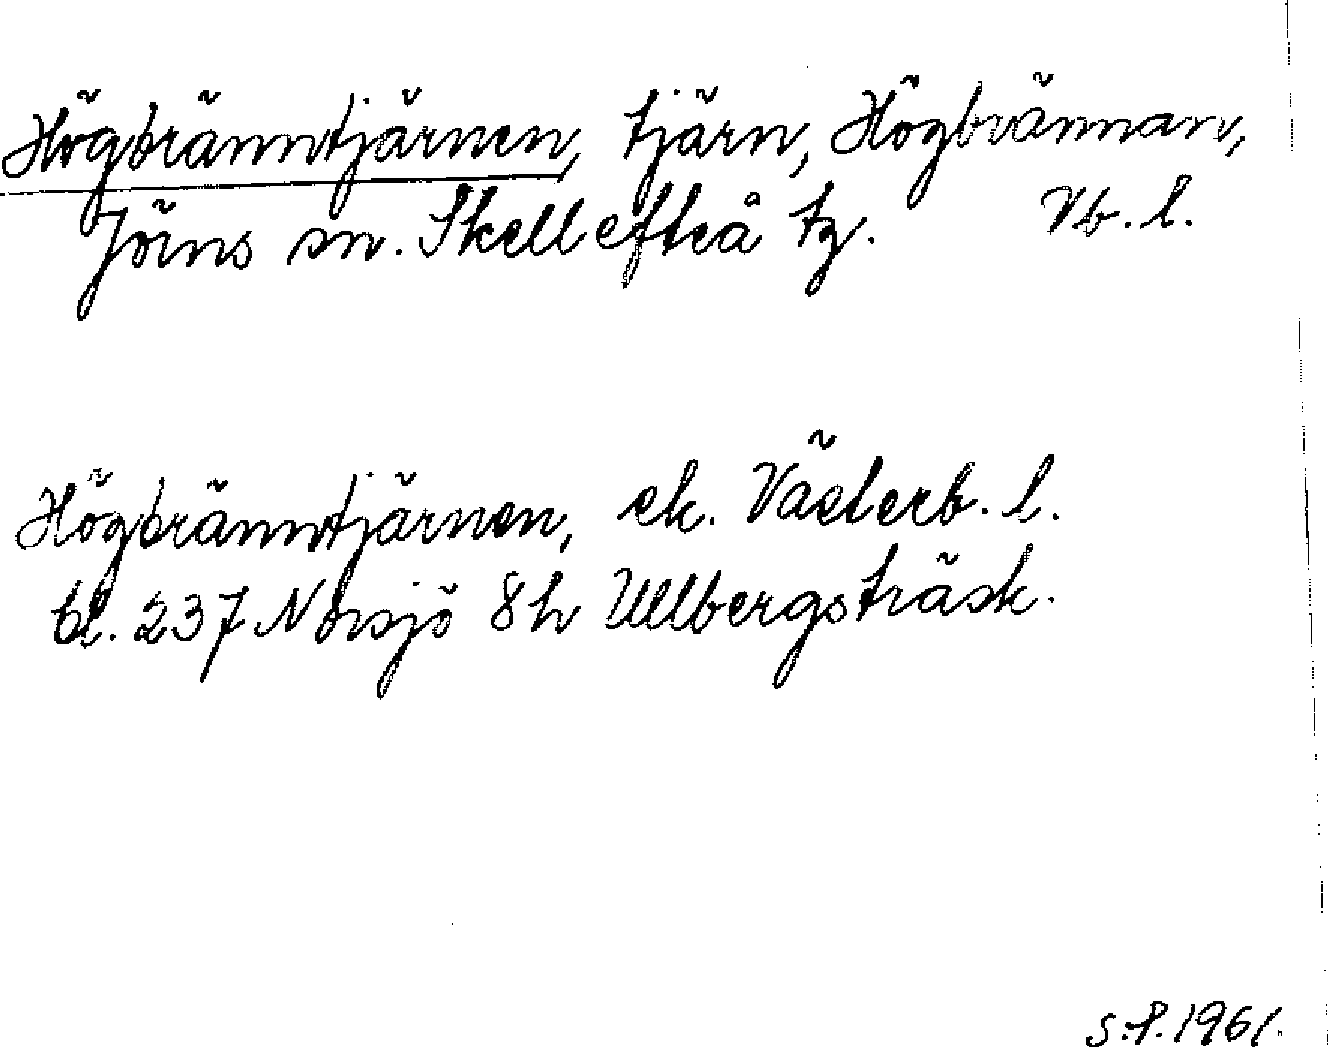 Högbränntjärnen, tjärn, Högbrännan,
Jörns sn. Skellefteå tg. Vb. l.
Högbränntjärnen, ek. Västerb. l.
bl. 237 Norsjö 8h Ullbergsträsk.
S.P. 1961.